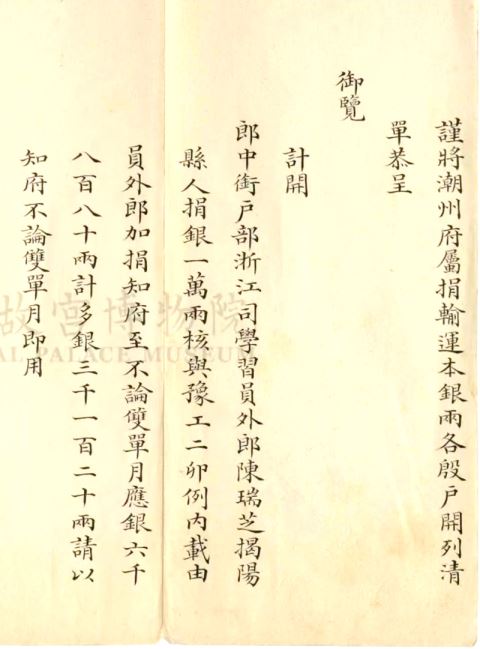 謹將潮州府屬捐輸運本銀兩各殷戶開列清
單恭呈
御覽
計開
郎中銜戶部浙江司學習員外郎陳瑞芝揭陽
縣人捐銀一萬兩核與豫工二卯例內載由
員外郎加捐知府至不論雙單月應銀六千
八百八十兩計多銀三千一百二十兩請以
知府不論雙單月即用
故宮博物院
AL PALACE MUSEUM